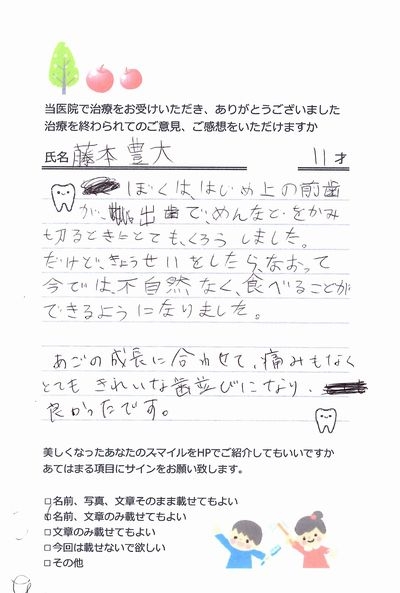 当医院で治療をお受けいただき、ありがとうございました
治療を終わられてのご意見、ご感想をいただけますか
氏名 藤本豊大 11才
ぼくは、はじめ上の前歯
が、出歯で、めんなどをかみ
切るときにとても、くろうしました。
だけど、きょうせいをしたら、なおって
今では、不自然なく、食べることが
できるようになりました。
あごの成長に合わせて、痛みもなく
とてもきれいな歯並びになり、
良かったです。
美しくなったあなたのスマイルをHPでご紹介してもいいですか
あてはまる項目にサインをお願い致します。
□名前、写真、文章そのまま載せてもよい
□名前、文章のみ載せてもよい
□文章のみ載せてもよい
□今回は載せないで欲しい
□その他